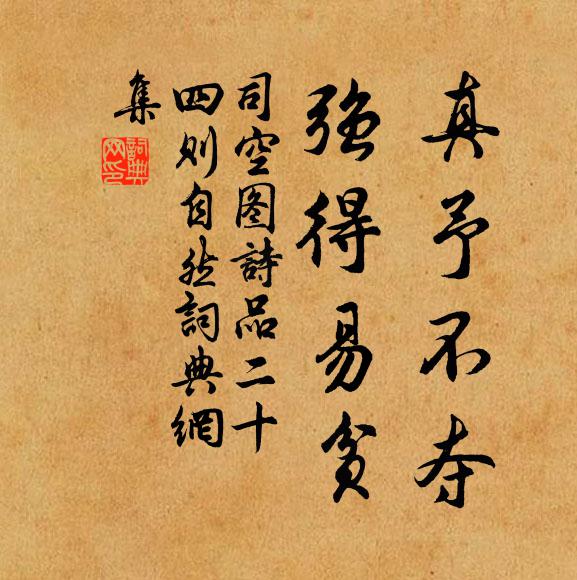 真予不夺
强得易贫
司空图詩品二十
四则自然詞典網
集
詞典
网印